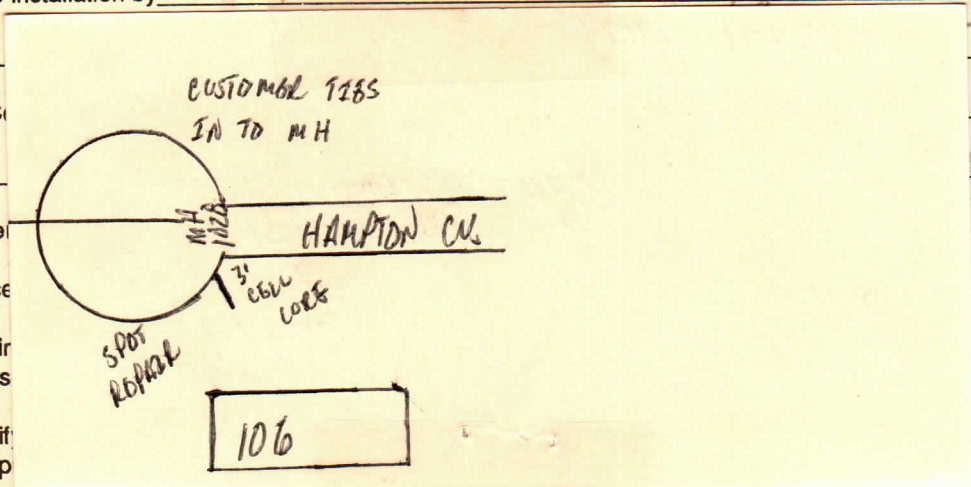 installation by
CUSTOMER TIES
IN TO MH
MH
102B
HAMPTON CV.
3'
CELL
CORE
SPOT
REPAIR
106